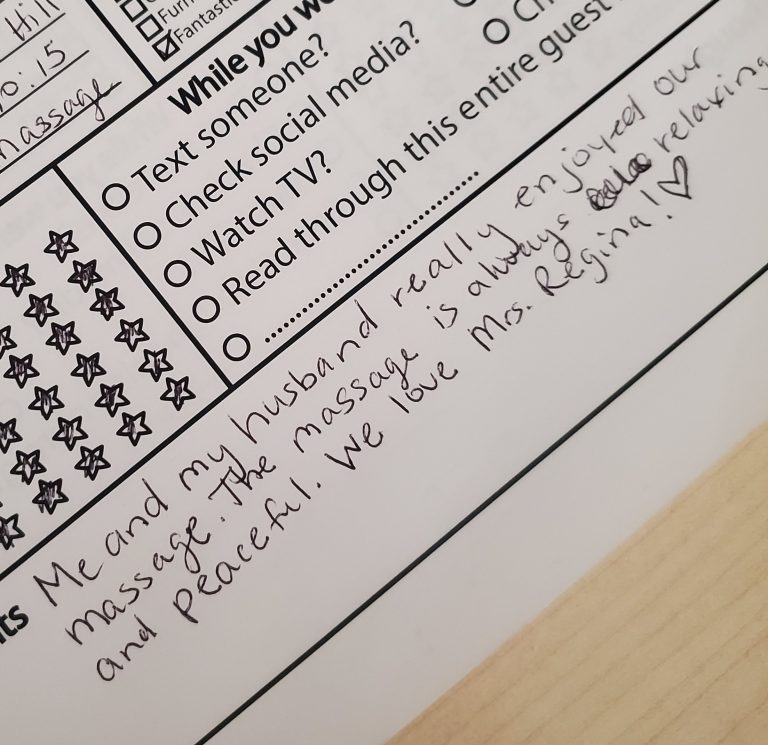 Hill
0:15
massage
Furn
Fantastic
While you w
Text someone?
Check social media?
Watch TV?
Read through this entire guest
Ch
Me and my husband really enjoyed our
massage. The massage is always relaxing
and peaceful. We love Mrs. Regina! ♡